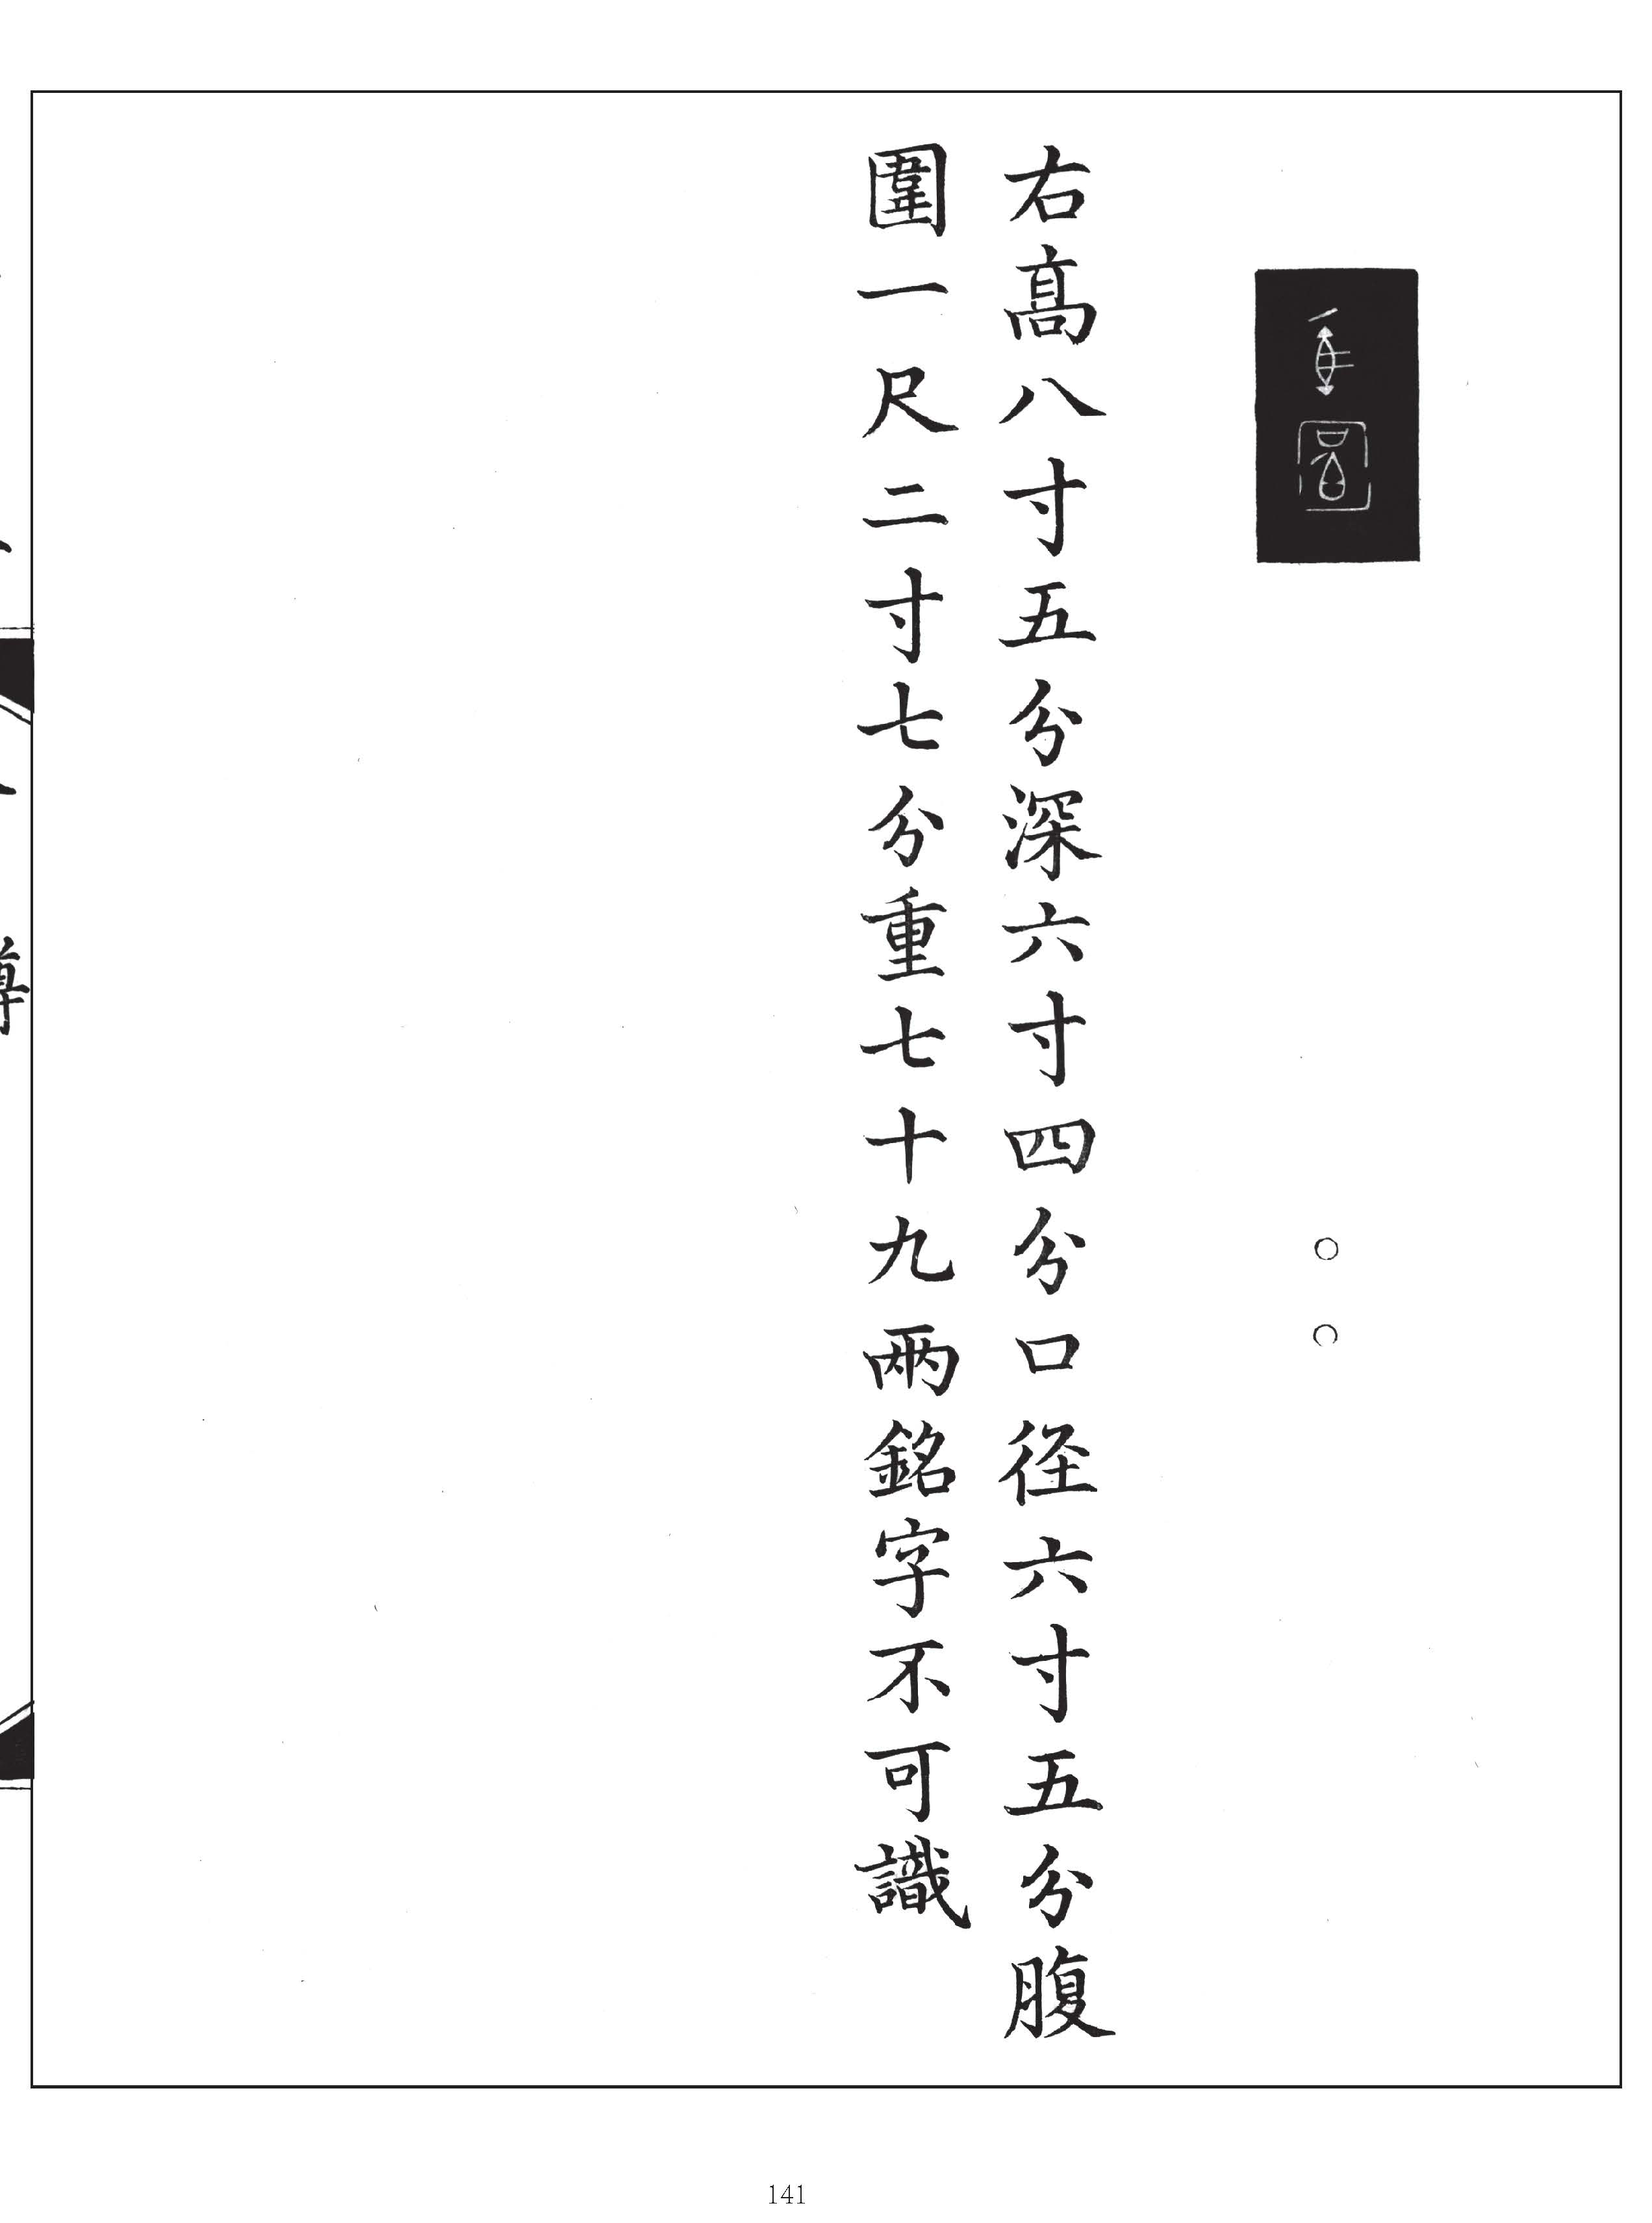 ○○
右高八寸五分深六寸四分口径六寸五分腹
圍一尺二寸七分重七十九兩銘字不可識
141